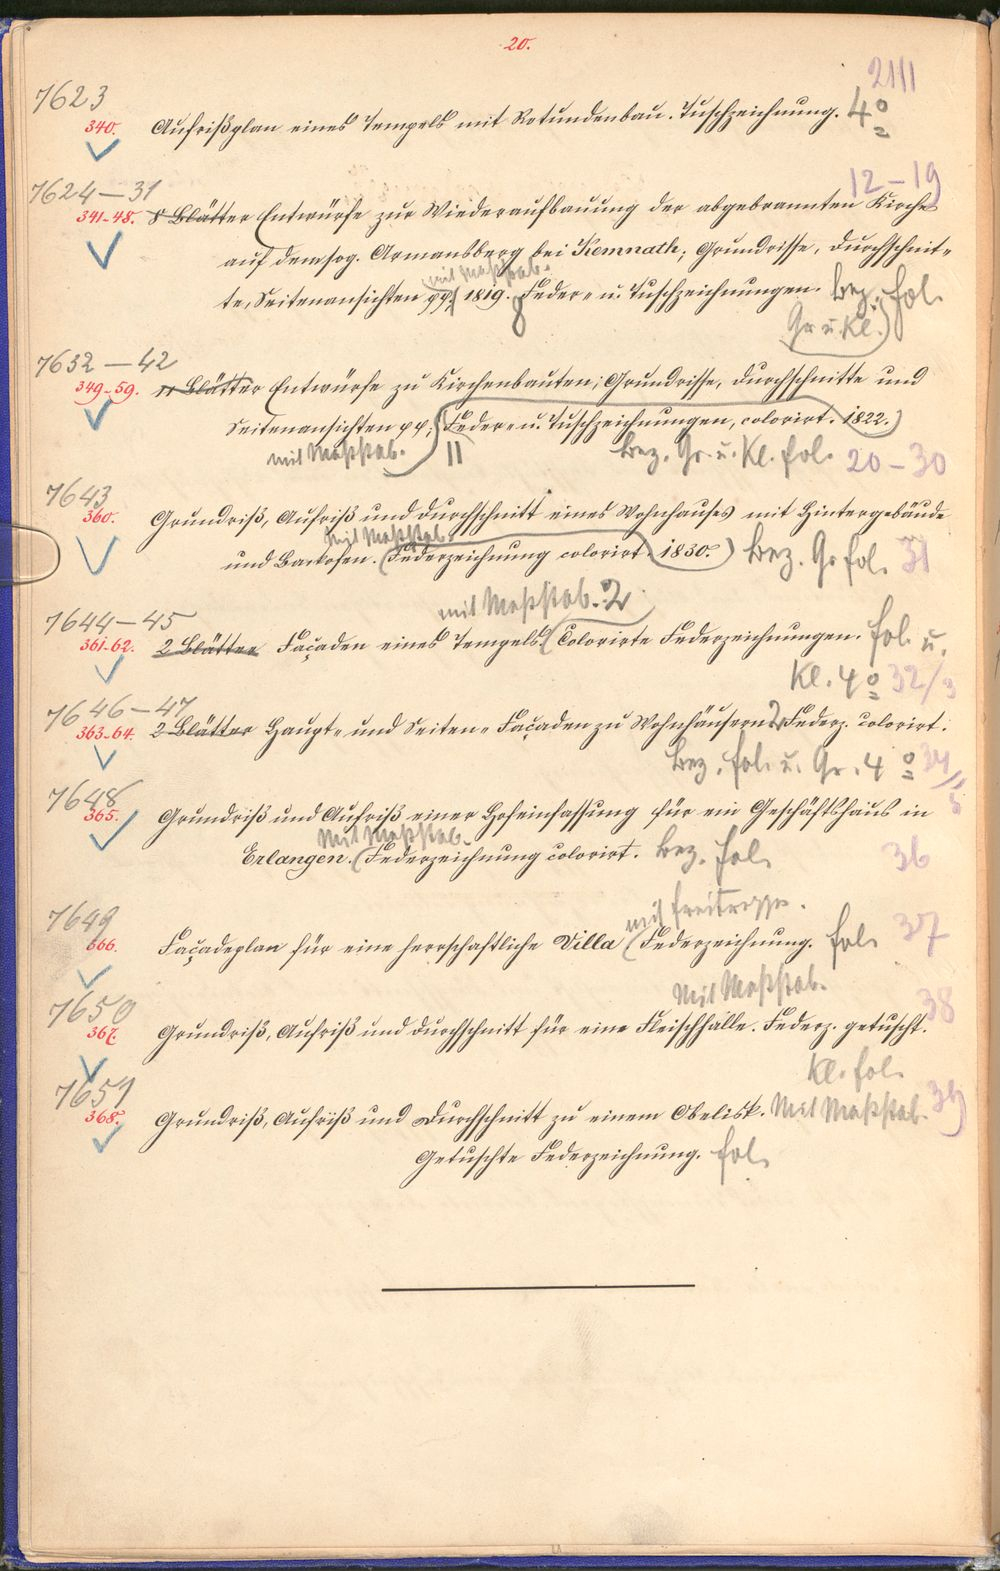 20.
2111
7623
340. Aufrißplan eines Tempels mit Rotundenbau. Tuschzeichnung. 4º
7624–31
12–19
341-48. 8 Blätter Entwürfe zur Wiederaufbauung der abgebrannten Kirche
auf dem sog. Armansberg bei Kemnath; Grundrisse, Durchschnit-
mit Maßstab.
te, Seitenansichten pp. 1819. 8 Feder- u. Tuschzeichnungen. Bez. fol.
Gr. u. Kl.
7632–42
349-59. 11 Blätter Entwürfe zu Kirchenbauten; Grundrisse, Durchschnitte und
Seitenansichten pp; (Feder- u. Tuschzeichnungen, colorirt. 1822.)
mit Maßstab. 11 Bez. Gr. u. Kl. fol. 20–30
7643
360. Grundriß, Aufriß und Durchschnitt eines Wohnhauses mit Hintergebäude
mit Maßstab.
und Backofen. (Federzeichnung colorirt. 1830.) Bez. Gr fol. 31
mit Maßstab. 2
7644–45
361-62. 2 Blätter Façaden eines Tempels. (Colorirte Federzeichnungen. fol. u.
Kl. 4º 32/3
7646–47
363-64. 2 Blätter Haupt- und Seiten-Façaden zu Wohnhäusern 2 Federz. colorirt.
Bez. fol. u. Gr. 4º 34/5
7648
365. Grundriß und Aufriß einer Hofeinfassung für ein Geschäftshaus in
Mit Maßstab.
Erlangen. (Federzeichnung colorirt. Bez. fol. 36
mit Freitreppe.
7649
366. Façadeplan für eine herrschaftliche Villa (Federzeichnung. fol. 37
Mit Maßstab.
7650 38
367. Grundriß, Aufriß und Durchschnitt für eine Fleischhalle. Federz. getuscht.
Kl. fol.
7651
368. Grundriß, Aufriß und Durchschnitt zu einem Obelisk. Mit Maßstab. 39
Getuschte Federzeichnung. fol.